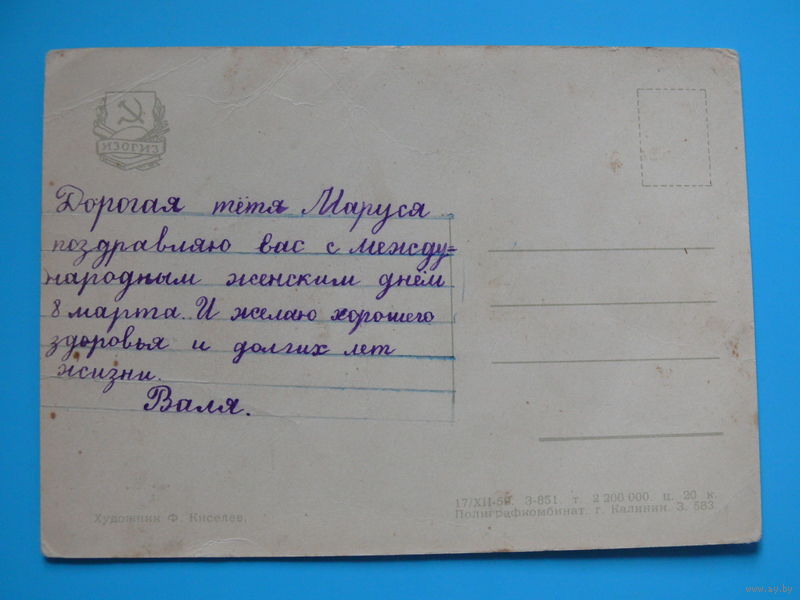 ИЗОГИЗ
Дорогая тётя Маруся
поздравляю вас с между=
народным женским днём
8 марта. И желаю хорошего
здоровья и долгих лет
жизни.
Валя.
Художник Ф. Киселев.
З-851. т. 2 200 000. ц. 20 к.
Полиграфкомбинат. г. Калинин. З. 583
www.ay.by